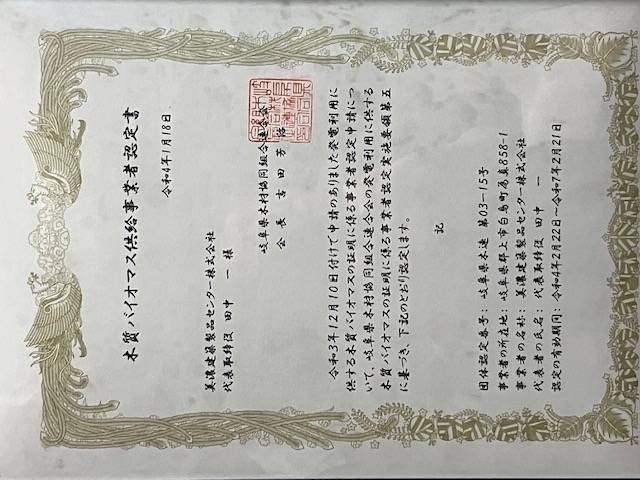 木質バイオマス供給事業者認定書
令和4年1月18日
美濃建築製品センター株式会社
代表取締役 田中 一 様
岐阜県木材協同組合連合会
会長 吉田芳治
令和3年12月10日付けで申請のありました発電利用に
供する木質バイオマスの証明に係る事業者認定申請につ
いて、岐阜県木材協同組合連合会の発電利用に供する
木質バイオマスの証明に係る事業者認定実施要領第五
に基づき、下記のとおり認定します。
記
団体認定番号：岐阜県木連 第03－15号
事業者の所在地：岐阜県郡上市白鳥町為真858-1
事業者の名称：美濃建築製品センター株式会社
代表者の氏名：代表取締役 田中 一
認定の有効期間：令和4年2月22日～令和7年2月21日